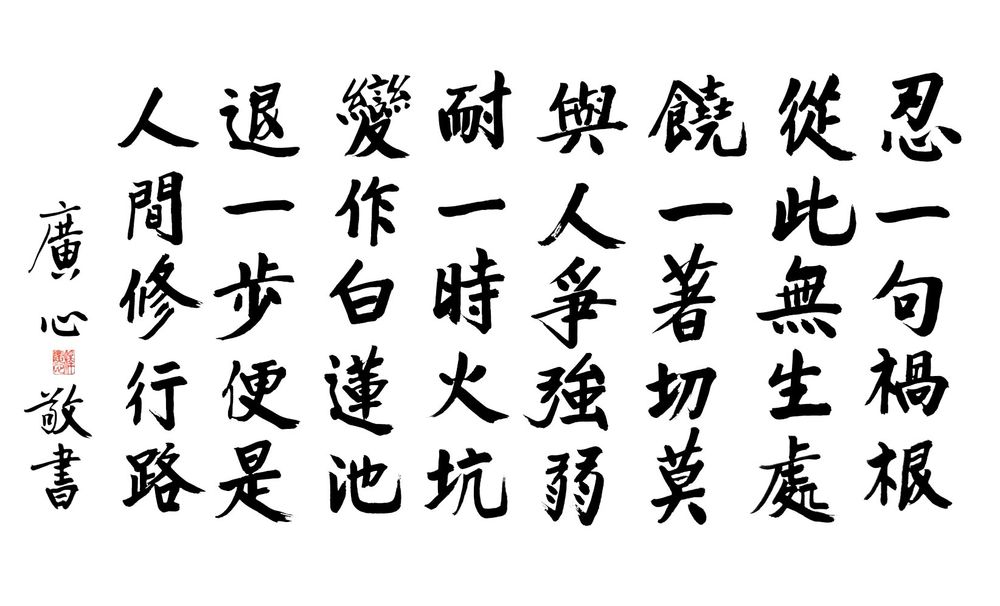 忍一句禍根
從此無生處
饒一著切莫
與人爭強弱
耐一時火坑
變作白蓮池
退一步便是
人間修行路
廣心敬書